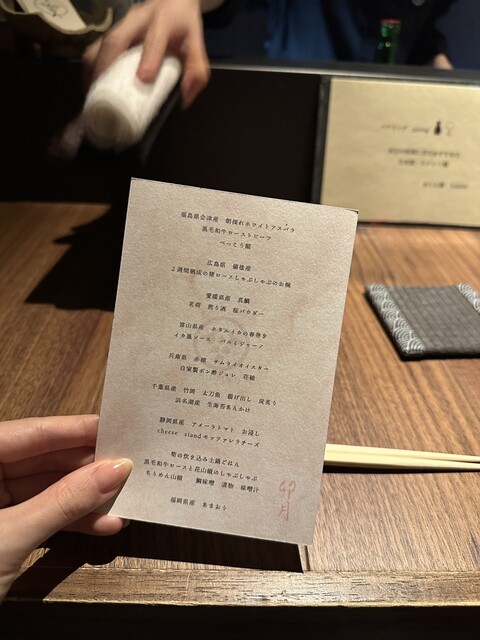 福島県会津産 朝採れホワイトアスパラ
黒毛和牛ローストビーフ
べっこう餡
広島県 備後産
2週間熟成の猪ロースしゃぶしゃぶのお椀
愛媛県産 真鯛
茗荷 煎り酒 桜パウダー
富山県産 ホタルイカの春巻き
イカ墨ソース パルミジャーノ
兵庫県 赤穂 サムライオイスター
自家製ポン酢ジュレ 花穂
千葉県産 竹岡 太刀魚 揚げ出し 炭炙り
浜名湖産 生海苔あんかけ
静岡県産 アメーラトマト お浸し
cheese standモッツァレラチーズ
筍の炊き込み土鍋ごはん
黒毛和牛ロースと花山椒のしゃぶしゃぶ
ちりめん山椒 鯛味噌 漬物 味噌汁
福岡県産 あまおう
卯月
ペアリング